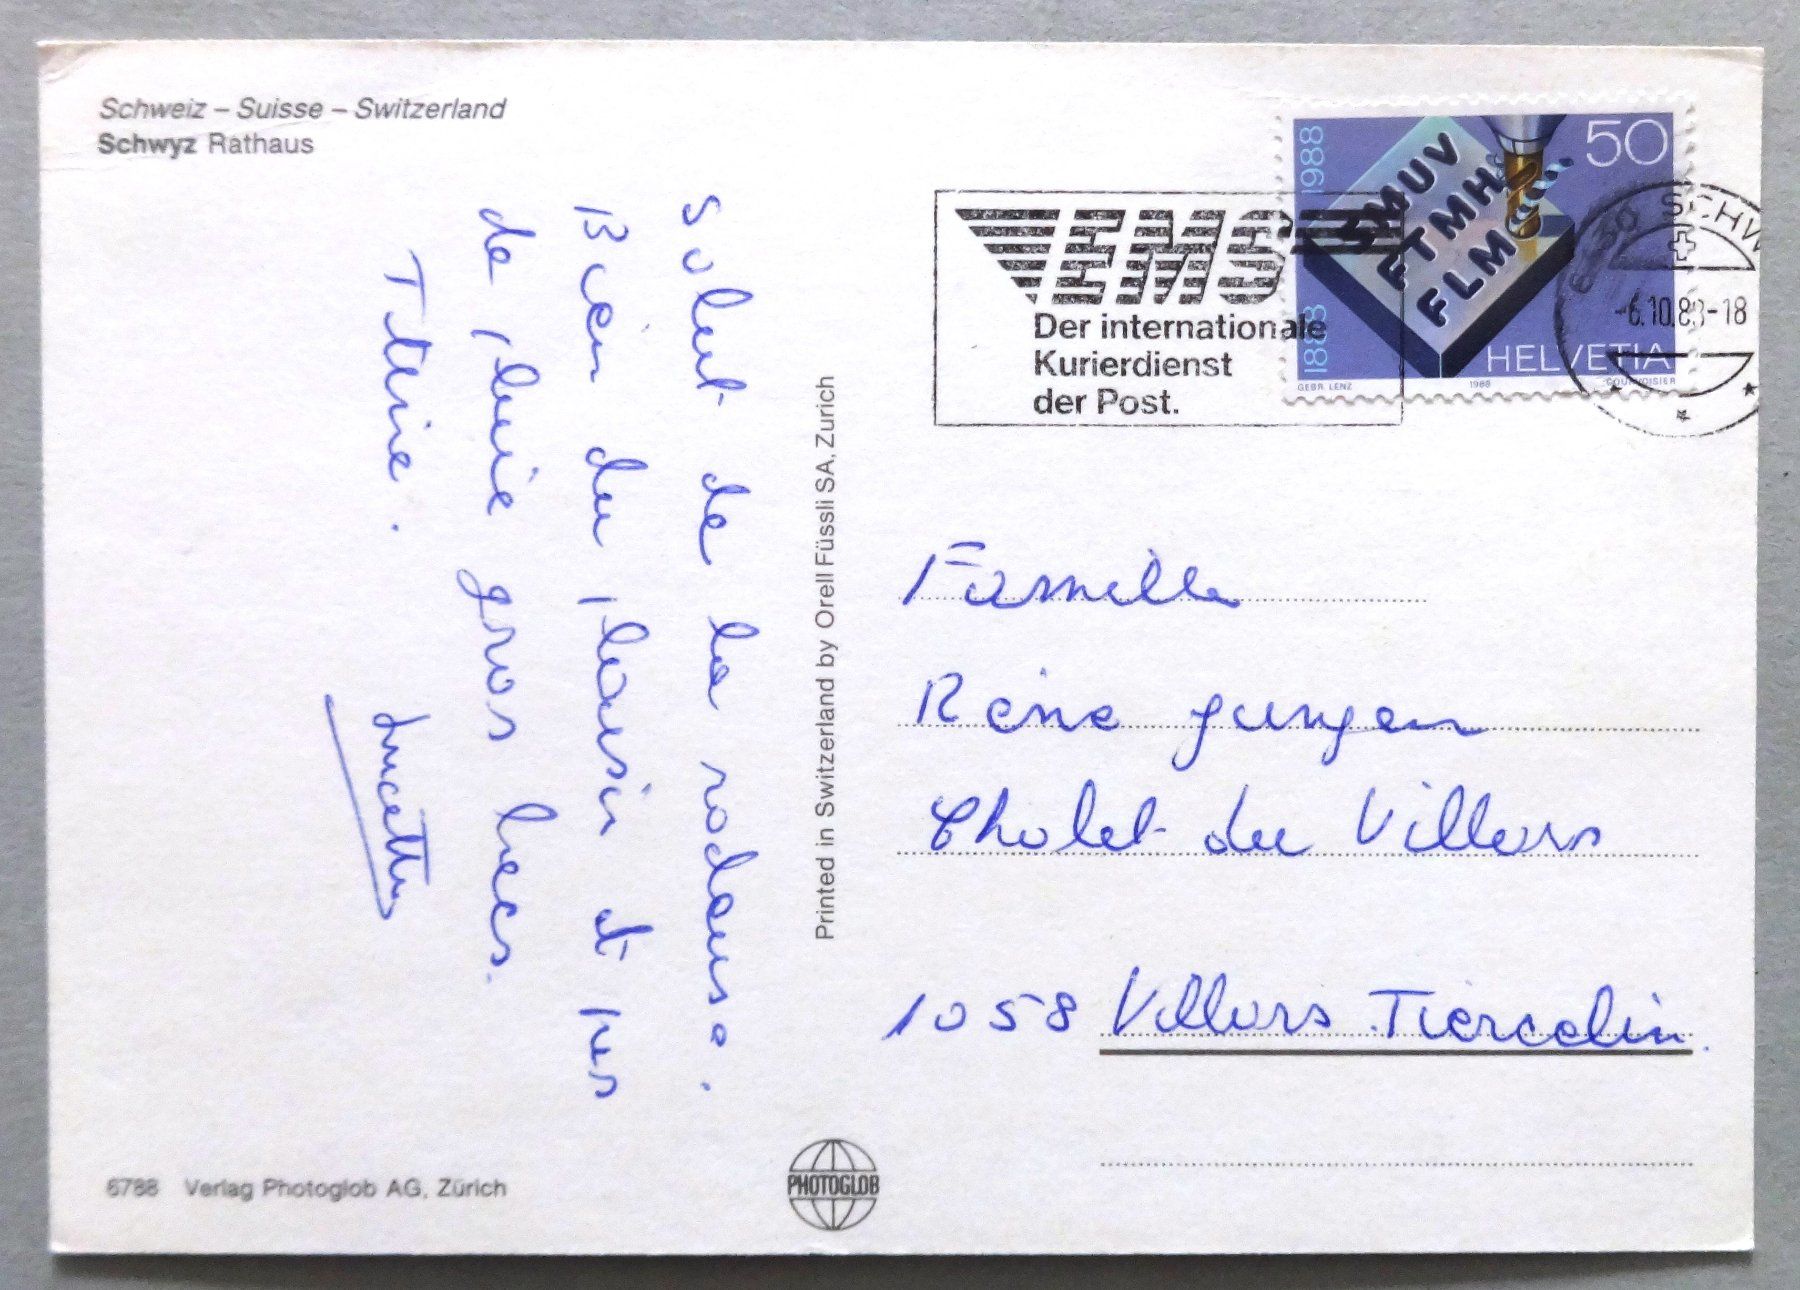 Schweiz – Suisse – Switzerland
Schwyz Rathaus
Salut de la rodeuse.
Bien du plaisir et pas
de pluie gros becs.
Lucette
6788 Verlag Photoglob AG, Zürich
Printed in Switzerland by Orell Füssli SA, Zürich
PHOTOGLOB
EMS
Der internationale
Kurierdienst
der Post.
1888 1988
50
SMUV
FTMH
FLM
HELVETIA
GEBR. LENZ 1988 COURVOISIER
SCHW
-6.10.88-18
Famille
Réne Jungen
Chalet du Villars
1058 Villars Tiercelin.